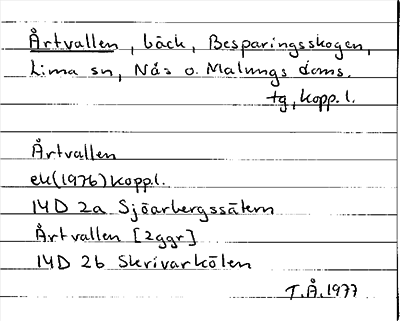 Årtvallen, bäck, Besparingsskogen,
Lima sn, Nås o. Malungs doms.
tg, kopp. l.
Årtvallen
ek(1976)koppl.
14D 2a Sjöarbergssätern
Årtvallen [2ggr]
14D 2b Skrivarkölen
T.Å. 1977